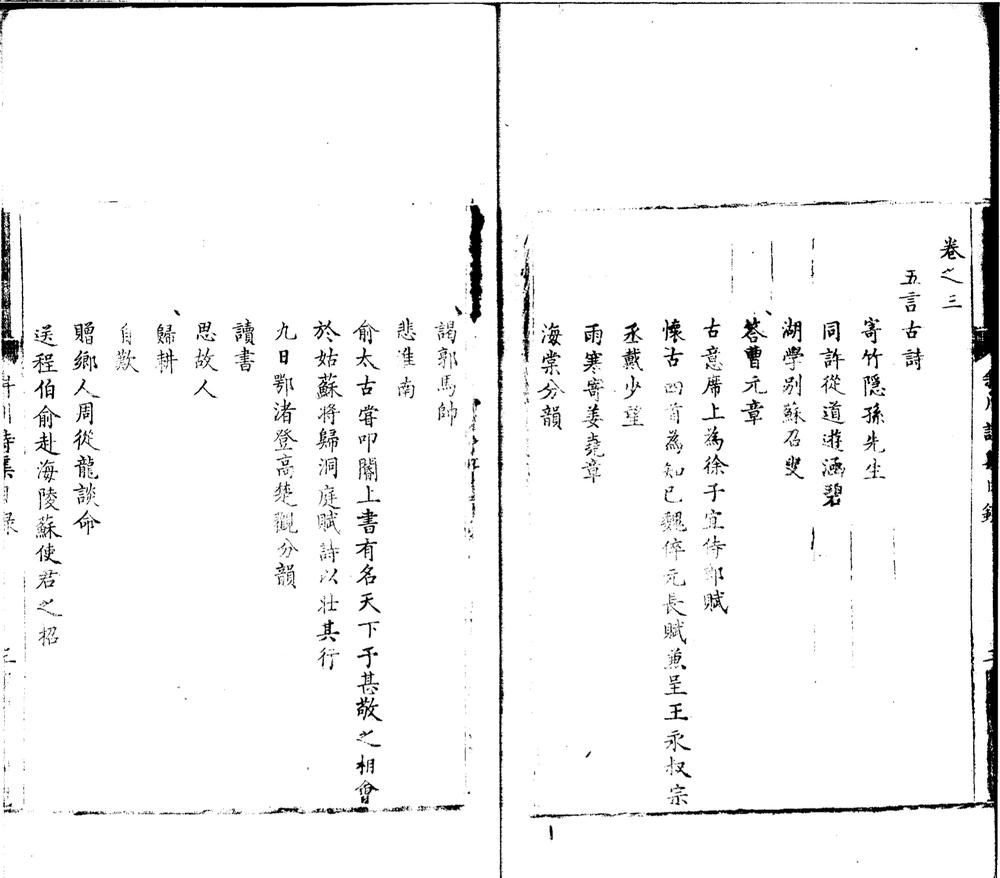 卷之三
五言古詩
寄竹隱孫先生
同許從道遊涵碧
湖學別蘇召叟
荅曹元章
古意席上為徐子宜侍郎賦
懷古四首為知已魏倅元長賦兼呈王永叔宗
丞戴少望
雨寒寄姜堯章
海棠分韻
謁郭馬帥
悲淮南
俞太古嘗叩閽上書有名天下予甚敬之相會
於姑蘇將歸洞庭賦詩以壯其行
九日鄂渚登高楚觀分韻
讀書
思故人
歸耕
自歎
贈鄉人周從龍談命
送程伯俞赴海陵蘇使君之招